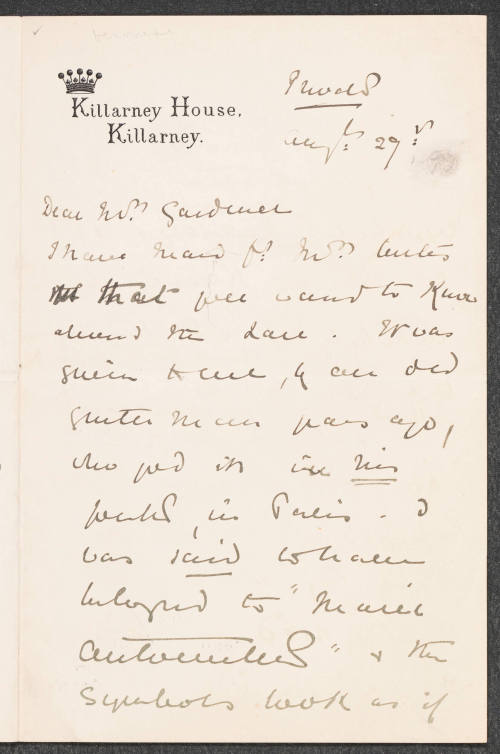 Killarney House,
Killarney.
Private
Aug^st: 29^th:
Dear Mrs. Gardner
I have heard fr. Mrs.
that you want to know
about the lace. It was
given to me, by an old
gentleman years ago,
who got it in his
youth, in Paris. I
was said to have
belonged to "Marie
Antoinette" & the
symbols look as if